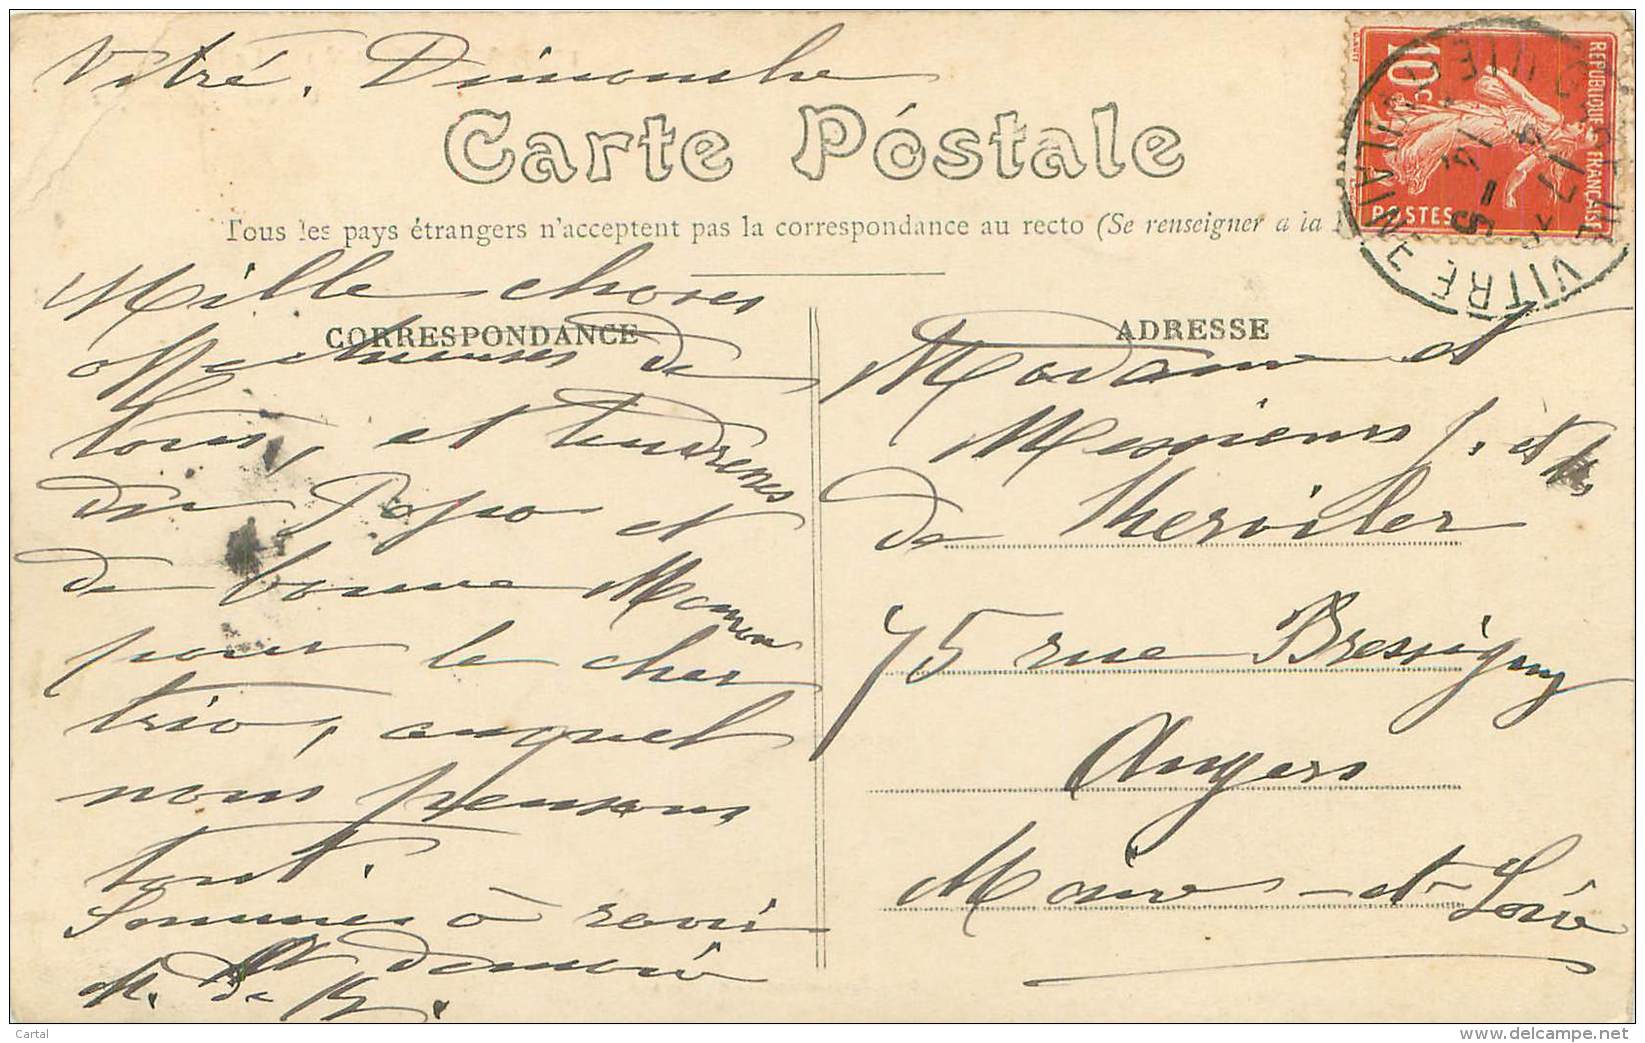 Vitré, Dimanche
Carte Postale
Tous les pays étrangers n'acceptent pas la correspondance au recto (Se renseigner a la
REPUBLIQUE FRANÇAISE
10c
POSTES
VITRE ILLE ET VILAINE
CORRESPONDANCE
Mille choses
affectueuses de
tous, et tendresses
du Papa et
de bonne Maman
pour le cher
trio, auquel
nous pensons
tant.
Sommes à ravir
M. de K.
ADRESSE
Madame et
Messieurs J. et
de
75 rue Bressigny
Angers
Maine-et-Loire
Cartal
delcampe.net